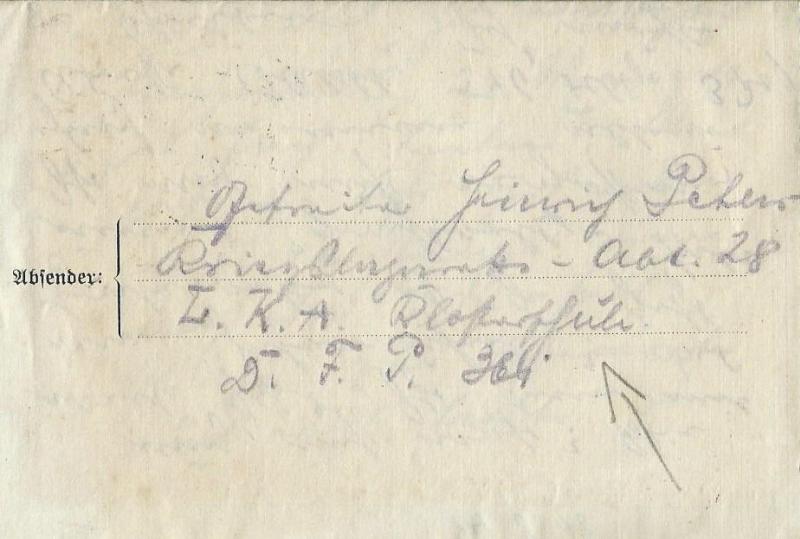 Absender:
Gefreiter Heinrich Peters
Kriegslazarett - Abt. 28
L. K. A. Klosterschule.
D. F. P. 364